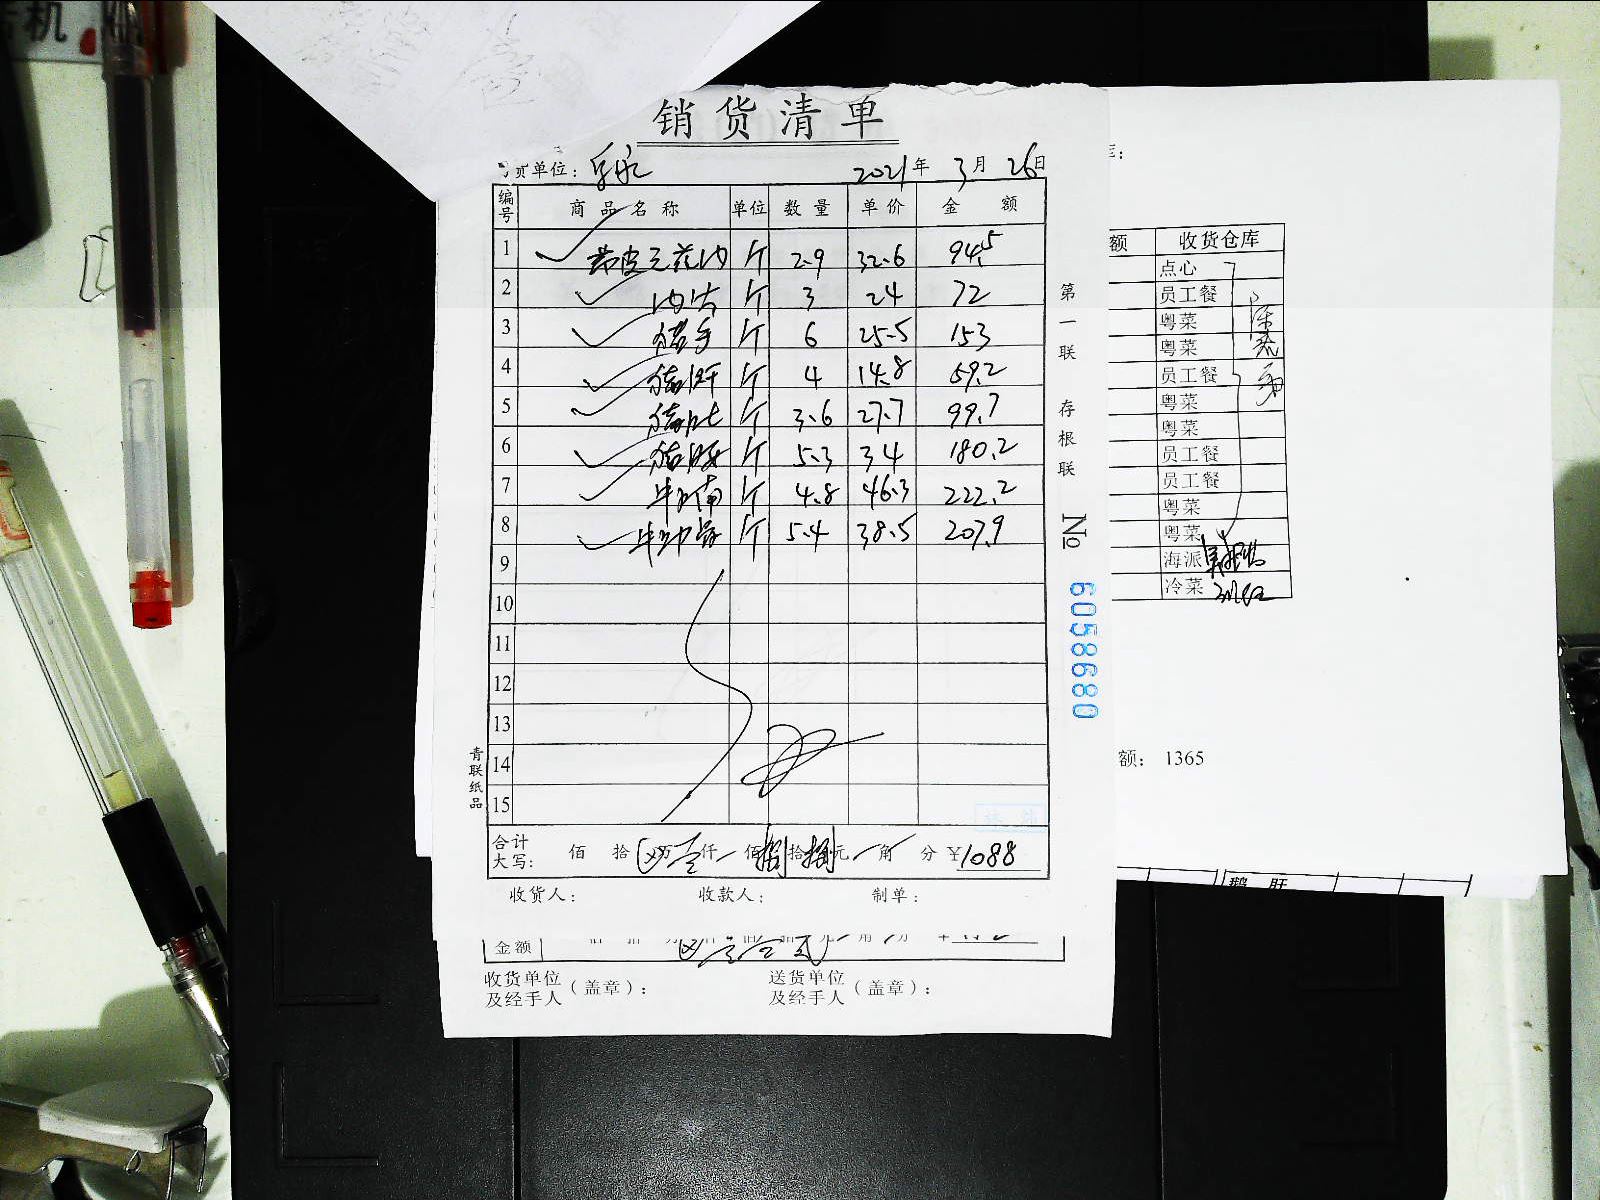 销货清单
货单位：
2021年 3月 26日
编号 商品名称 单位 数量 单价 金额
1 带皮五花肉 斤 2.9 32.6 94.5
2 斤 3 24 72
3 猪手 斤 6 25.5 153
4 猪肝 斤 4 14.8 59.2
5 猪肚 斤 3.6 27.7 99.7
6 斤 5.3 34 180.2
7 牛腩 斤 4.8 46.3 222.2
8 斤 5.4 38.5 207.9
9
10
11
12
13
14
15
合计大写： 佰 拾 万 壹仟 一佰 捌拾 捌元 一角 分 ￥1088
收货人： 收款人： 制单：
青联纸品
第一联 存根联
№ 6058680
金额
收货单位及经手人（盖章）： 送货单位及经手人（盖章）：
库：
额 收货仓库
点心
员工餐
粤菜
粤菜
员工餐
粤菜
粤菜
员工餐
员工餐
粤菜
粤菜
海派
冷菜
额： 1365
鹅肝
机